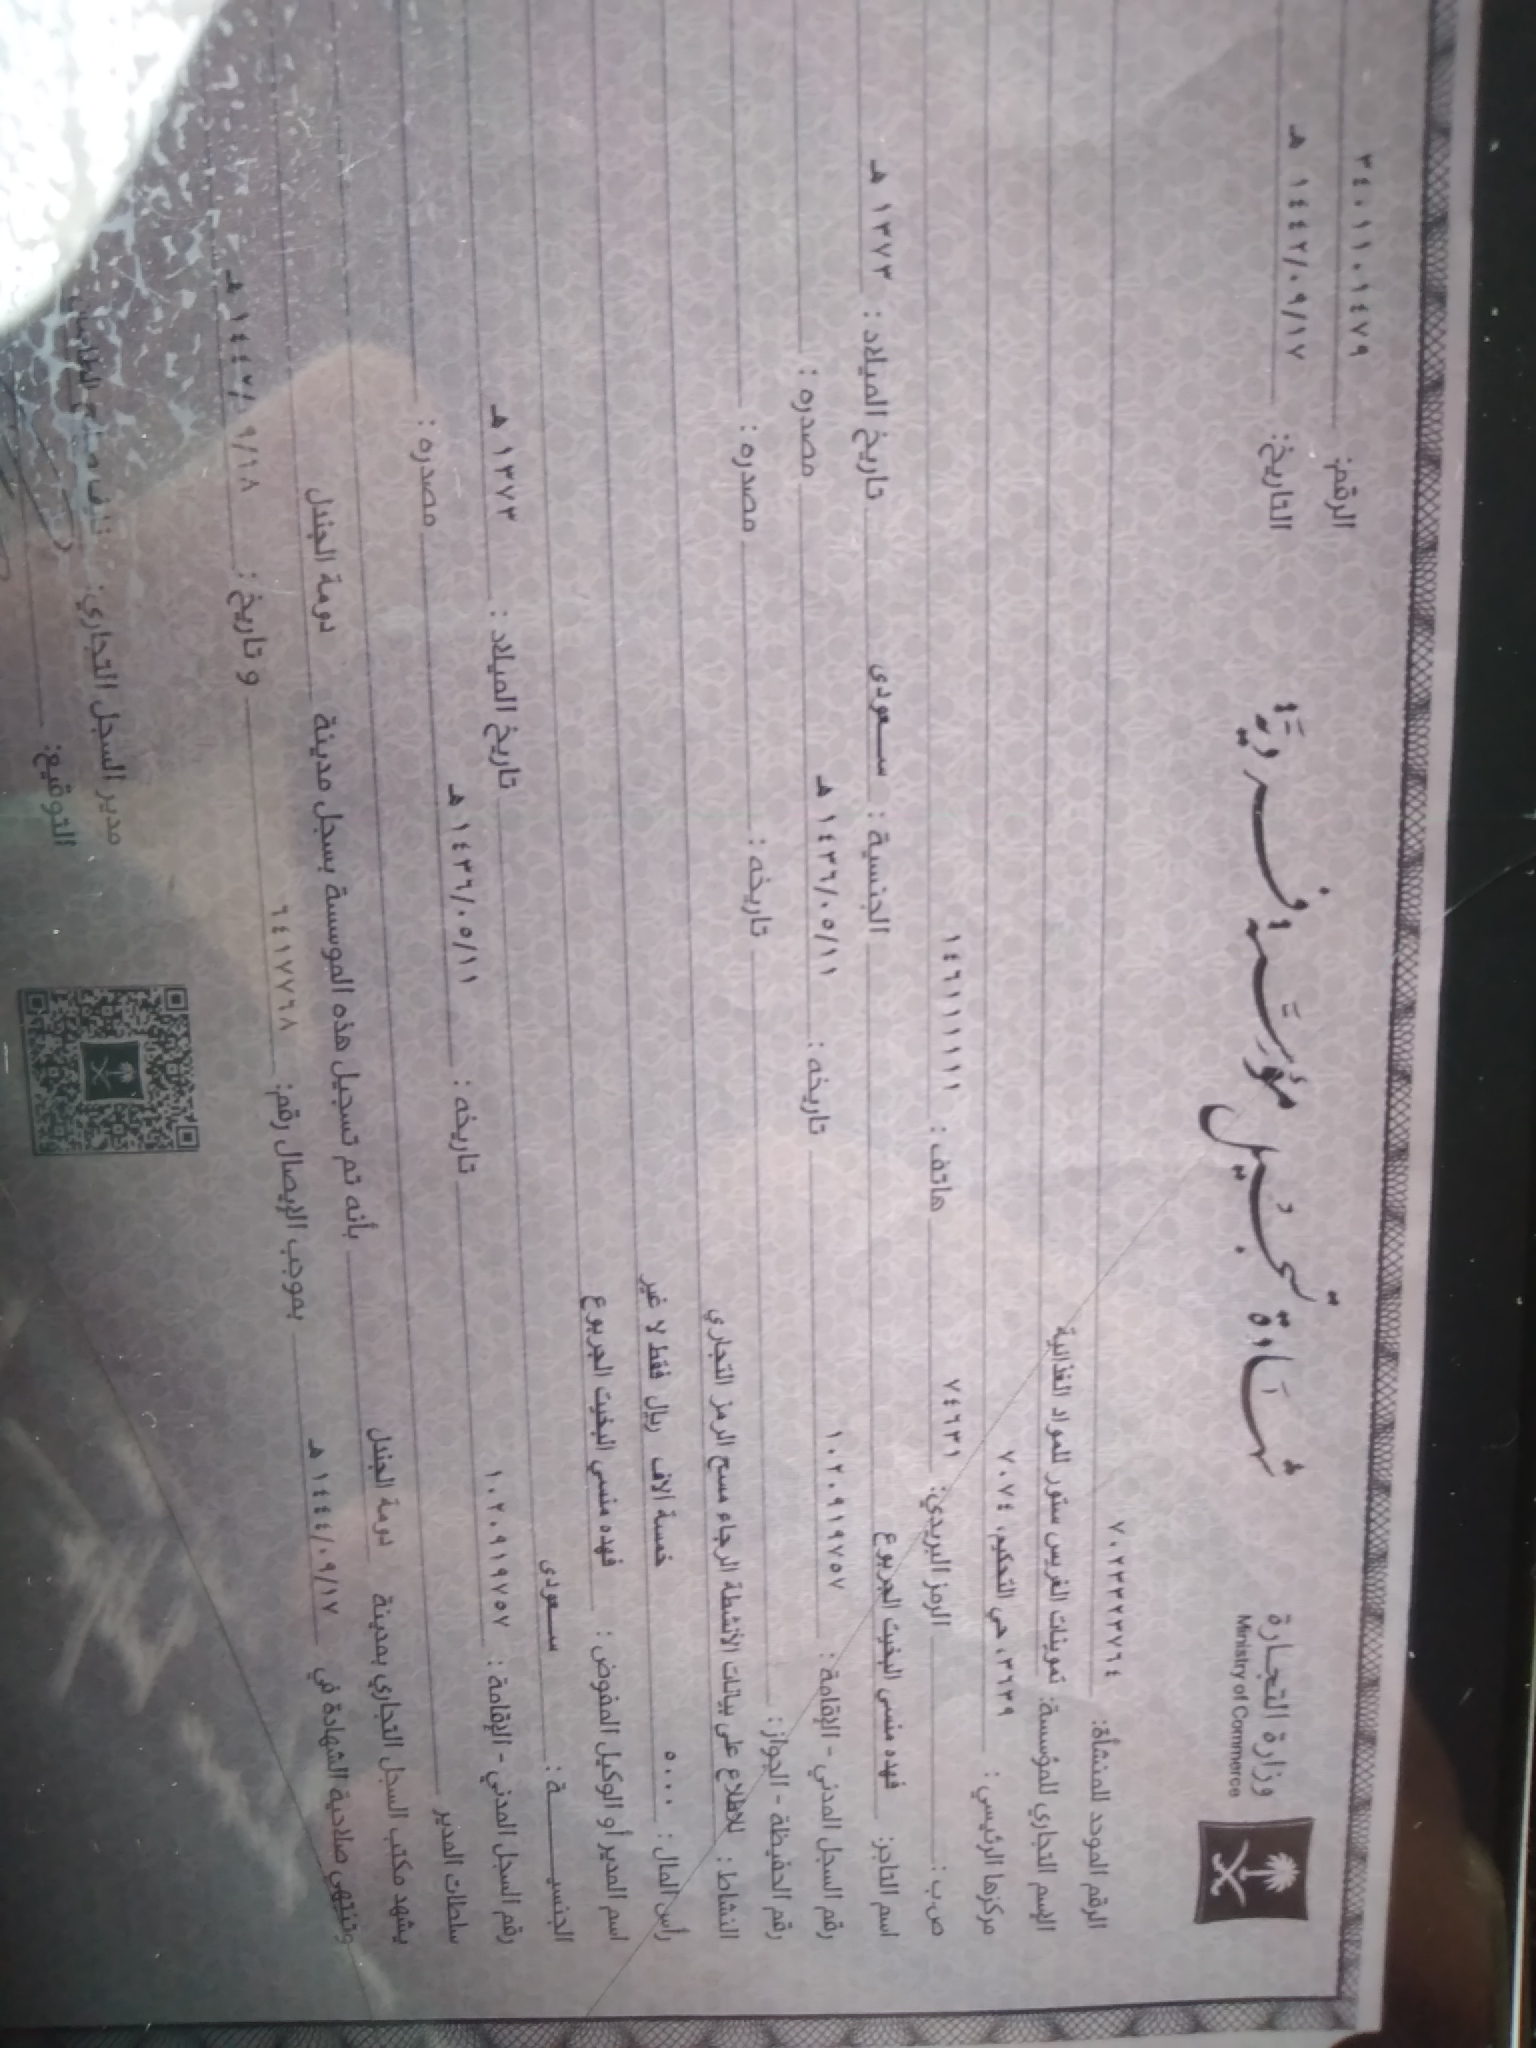 وزارة التجارة
Ministry of Commerce
شهادة تسجيل مؤسسة فردية
الرقم: ٣٤٠١١٠٩٤٧٩
التاريخ: ١٤٤٢/٠٩/١٧ هـ
الرقم الموحد للمنشأة: ٧٠٢٣٣٢٣٧٦٤
الإسم التجاري للمؤسسة: تموينات الغريس ستور للمواد الغذائية
مركزها الرئيسي : ٣٦٣٩، حي التحكيم، ٧٠٧٤
ص.ب : الرمز البريدي: ٧٤٦٣١ هاتف : ١٤٦١١١١١١١
اسم التاجر: فهده منسي البخيت الجربوع الجنسية : سعودى تاريخ الميلاد : ١٣٧٣ هـ
رقم السجل المدني - الإقامة : ١٠٢٠٩١٩٧٥٧ تاريخه : ١٤٣٦/٠٥/١١ هـ مصدره :
رقم الحفيظة - الجواز : تاريخه : مصدره :
النشاط : للاطلاع على بيانات الأنشطة الرجاء مسح الرمز التجاري
رأس المال : ٥٠٠٠ خمسة الاف ريال فقط لا غير
اسم المدير أو الوكيل المفوض : فهده منسي البخيت الجربوع
الجنسيــــــة : سعودى
رقم السجل المدني - الإقامة : ١٠٢٠٩١٩٧٥٧ تاريخ الميلاد : ١٣٧٣ هـ
سلطات المدير تاريخه : ١٤٣٦/٠٥/١١ هـ مصدره :
يشهد مكتب السجل التجاري بمدينة دومة الجندل بأنه تم تسجيل هذه الموسسة بسجل مدينة دومة الجندل
وتنتهي صلاحية الشهادة في ١٤٤٤/٠٩/١٧ هـ بموجب الإيصال رقم: ٦٤١٧٧٦٨ و تاريخ : ١٤٤٢/٠٩/١٨ هـ
مدير السجل التجاري:
التوقيع: